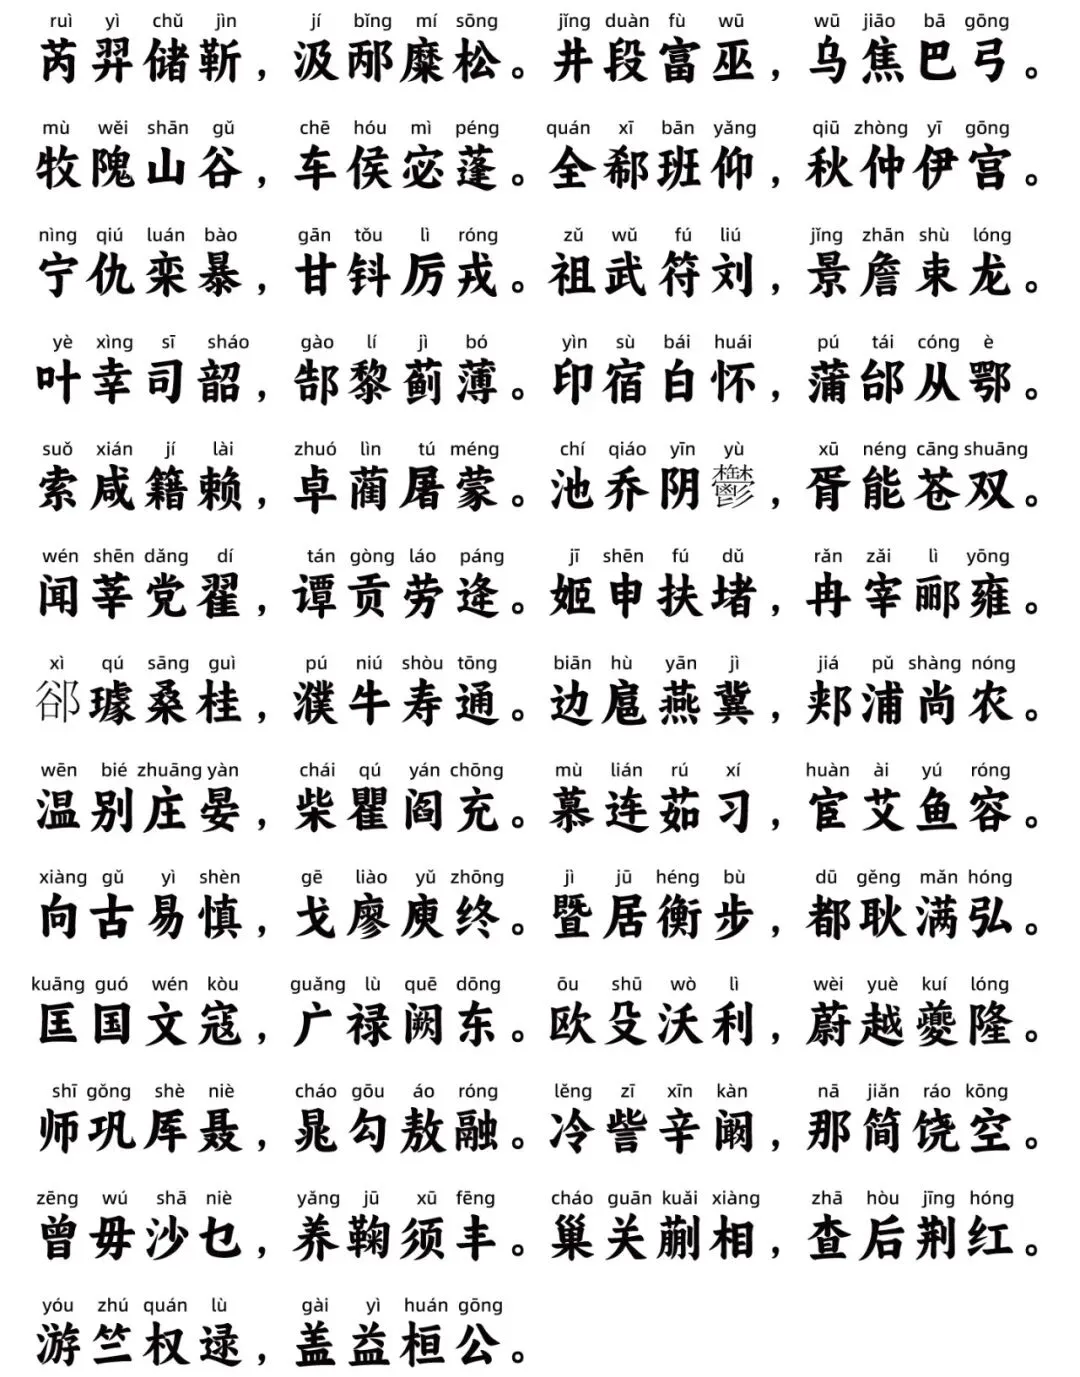 ruì yì chǔ jìn jí bǐng mí sōng jǐng duàn fù wū wū jiāo bā gōng
芮羿储靳，汲邴糜松。井段富巫，乌焦巴弓。
mù wěi shān gǔ chē hóu mì péng quán xī bān yǎng qiū zhòng yī gōng
牧隗山谷，车侯宓蓬。全郗班仰，秋仲伊宫。
nìng qiú luán bào gān tǒu lì róng zǔ wǔ fú liú jǐng zhān shù lóng
宁仇栾暴，甘钭厉戎。祖武符刘，景詹束龙。
yè xìng sī sháo gào lí jì bó yìn sù bái huái pú tái cóng è
叶幸司韶，郜黎蓟薄。印宿白怀，蒲邰从鄂。
suǒ xián jí lài zhuó lìn tú méng chí qiáo yīn yù xū néng cāng shuāng
索咸籍赖，卓蔺屠蒙。池乔阴鬱，胥能苍双。
wén shēn dǎng dí tán gòng láo páng jī shēn fú dǔ rǎn zǎi lì yōng
闻莘党翟，谭贡劳逄。姬申扶堵，冉宰郦雍。
xì qú sāng guì pú niú shòu tōng biān hù yān jì jiá pǔ shàng nóng
郤璩桑桂，濮牛寿通。边扈燕冀，郏浦尚农。
wēn bié zhuāng yàn chái qú yán chōng mù lián rú xí huàn ài yú róng
温别庄晏，柴瞿阎充。慕连茹习，宦艾鱼容。
xiàng gǔ yì shèn gē liào yǔ zhōng jì jū héng bù dū gěng mǎn hóng
向古易慎，戈廖庾终。暨居衡步，都耿满弘。
kuāng guó wén kòu guǎng lù quē dōng ōu shū wò lì wèi yuè kuí lóng
匡国文寇，广禄阙东。欧殳沃利，蔚越夔隆。
shī gǒng shè niè cháo gōu áo róng lěng zī xīn kàn nā jiǎn ráo kōng
师巩厍聂，晁勾敖融。冷訾辛阚，那简饶空。
zēng wú shā niè yǎng jū xū fēng cháo guān kuǎi xiàng zhā hòu jīng hóng
曾毋沙乜，养鞠须丰。巢关蒯相，查后荆红。
yóu zhú quán lù gài yì huán gōng
游竺权逯，盖益桓公。